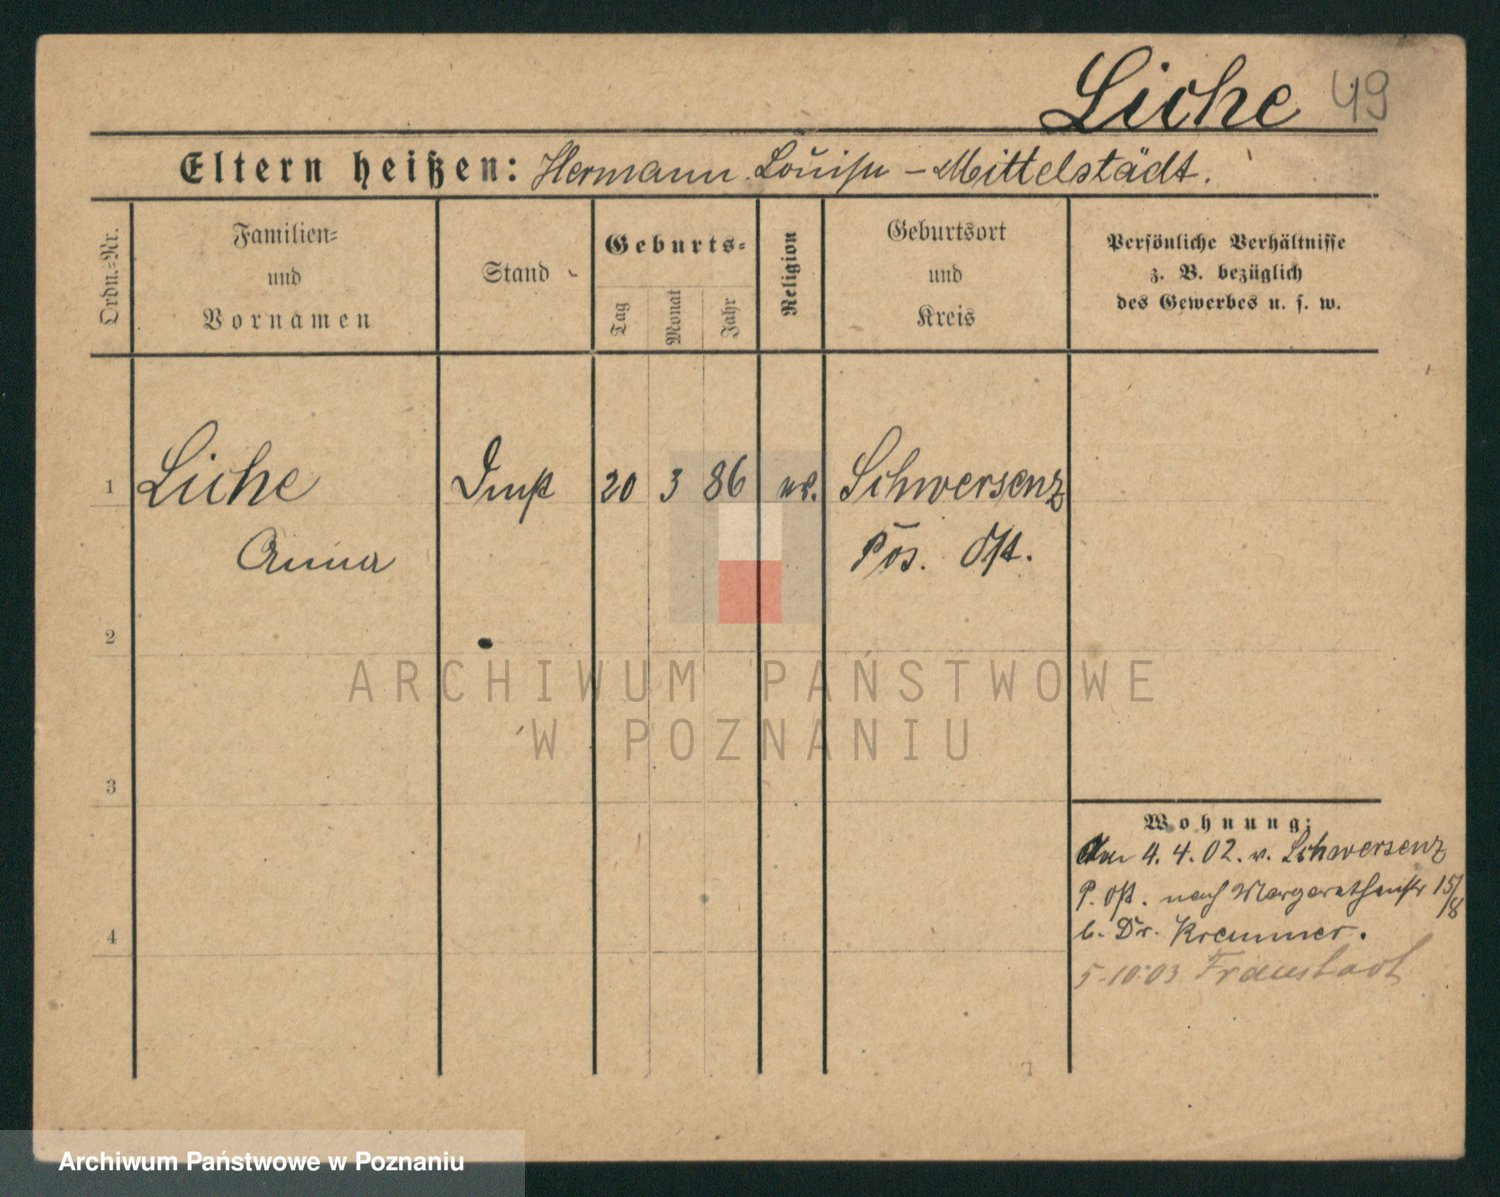 Liche 49
Eltern heißen: Hermann Louise - Mittelstädt.
Ordn.=Nr.
Familien= und Vornamen
Stand
Geburts=
Tag
Monat
Jahr
Religion
Geburtsort und Kreis
Persönliche Verhältnisse z. B. bezüglich des Gewerbes u. s. w.
1 Liche 20 3 86 Schwersenz
Anna Pos. Ost.
2
ARCHIWUM PAŃSTWOWE
W POZNANIU
3
Wohnung:
4. 4. 02. v. Schwersenz
P. Ost. nach Margarethenstr 15/8
b. Dr. Kremmer.
4
5-10.03 Fraustadt
Archiwum Państwowe w Poznaniu